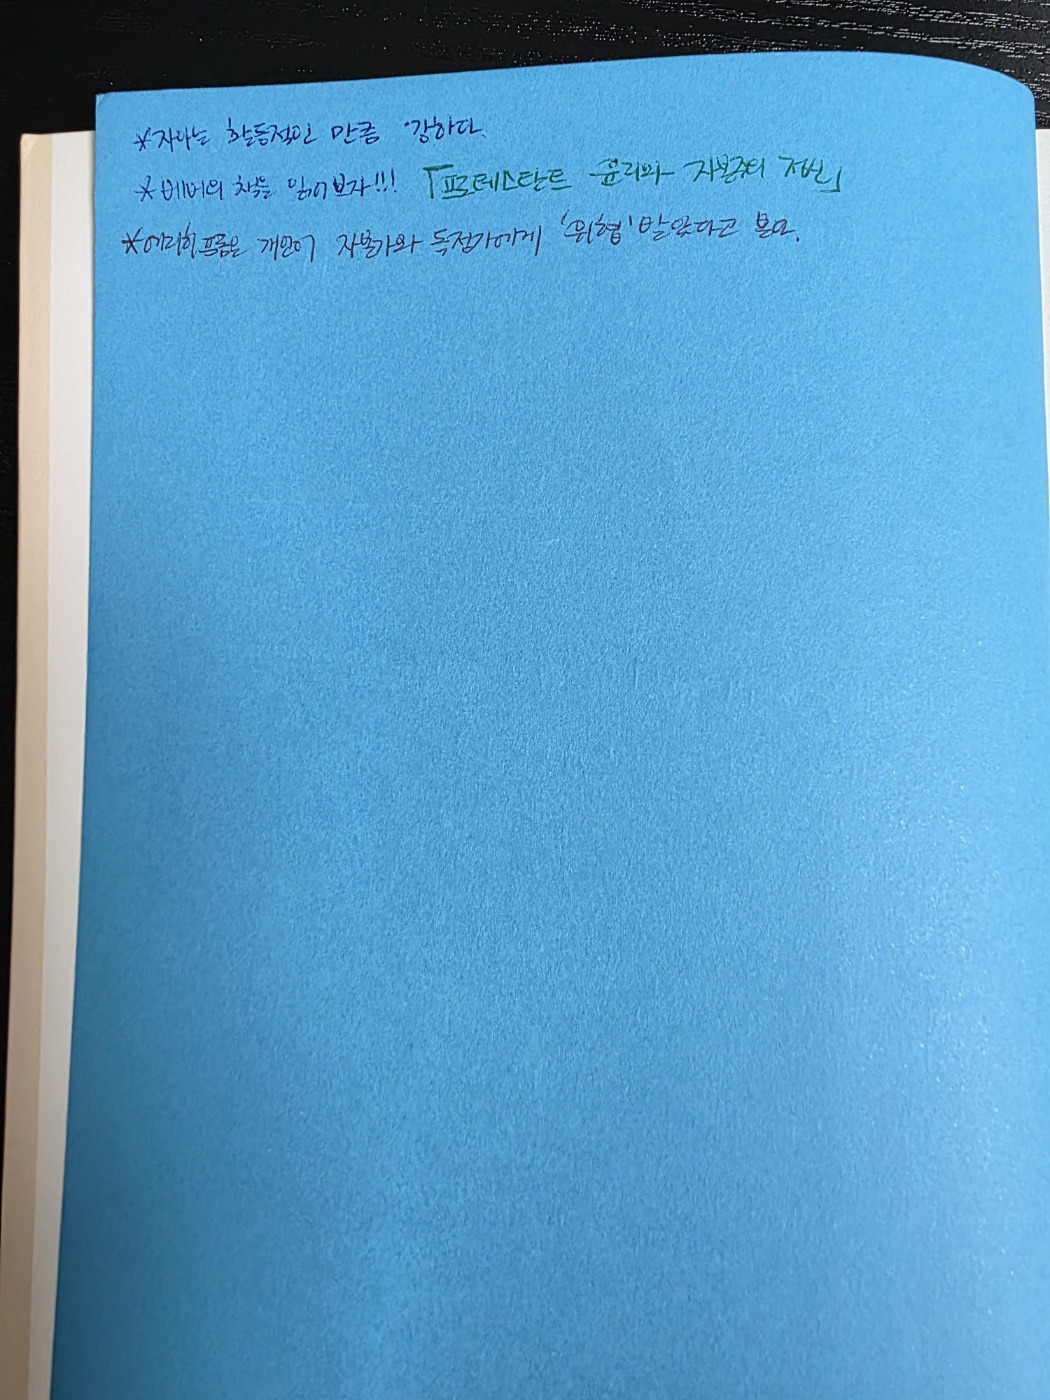 *자아는 활동적인 만큼 강하다.
*베버의 책을 읽어보자!!! 「프로테스탄트 윤리와 자본주의 정신」
*에리히 프롬은 개인이 자본가와 독점가에게 '위협'받았다고 봄.